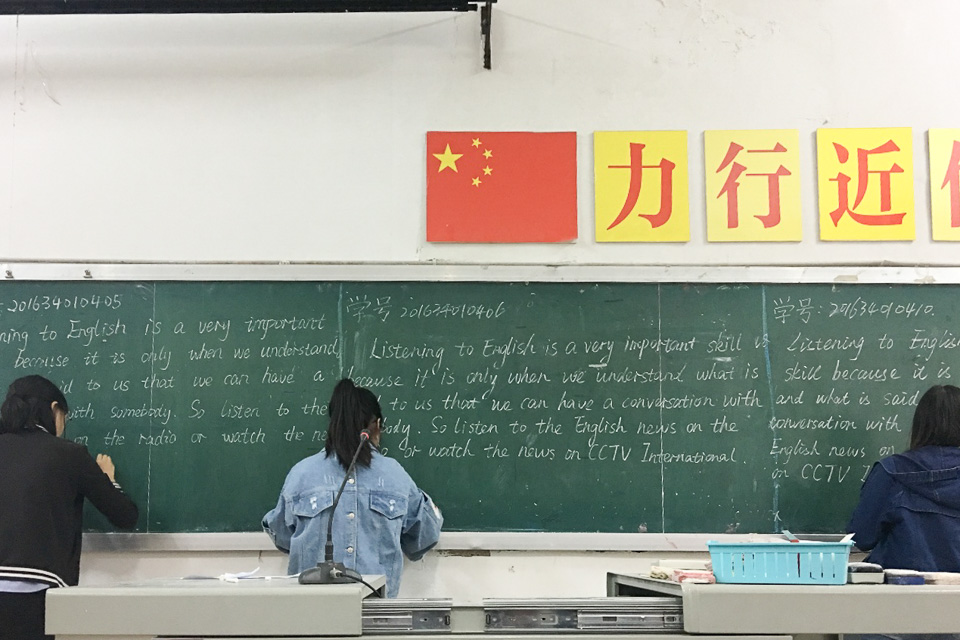 力行近
201634010405
ning to English is a very important
because it is only when we understand
id to us that we can have a
with somebody. So listen to the
on the radio or watch the ne
学号 201634010406
Listening to English is a very important skill is
because it is only when we understand what is
d to us that we can have a conversation with
body. So listen to the English news on the
or watch the news on CCTV International.
学号: 201634010410.
Listening to English
skill because it is
and what is said
conversation with
English news on
on CCTV I